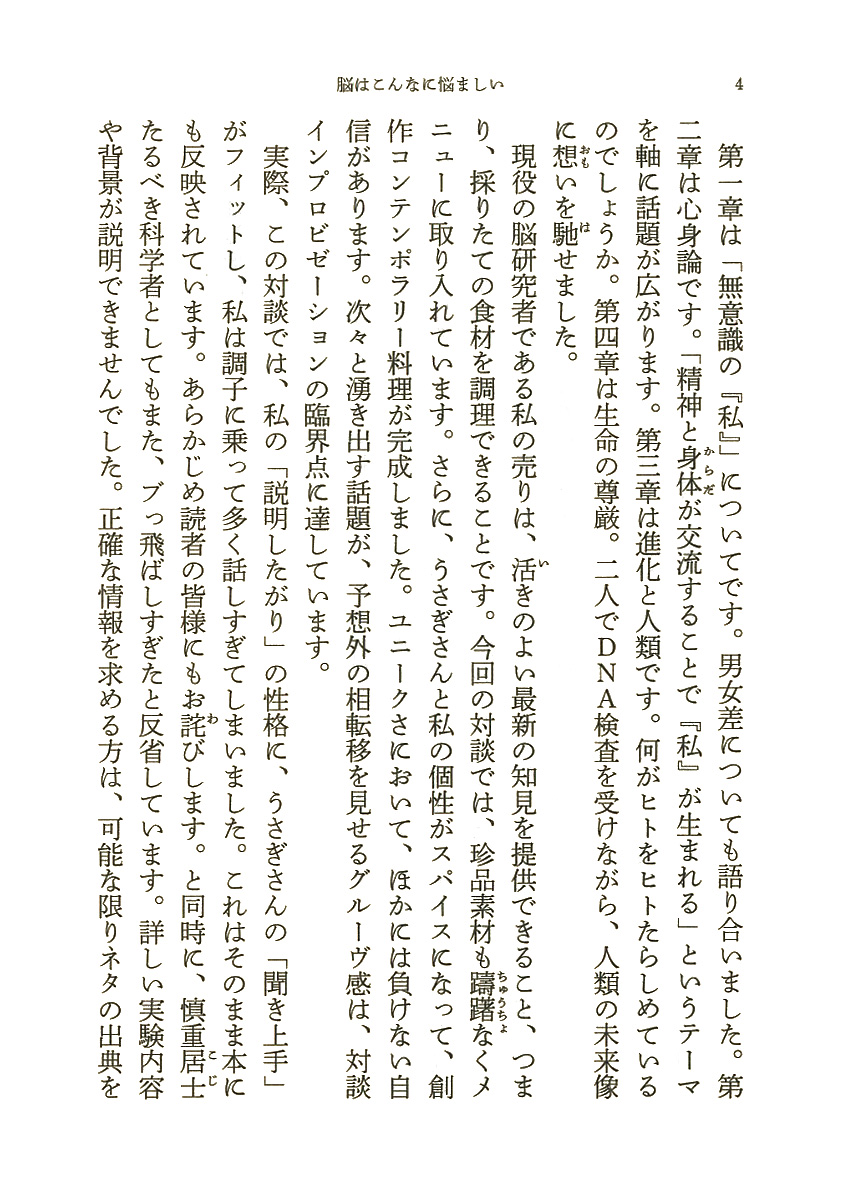 脳はこんなに悩ましい
4
第一章は「無意識の『私』」についてです。男女差についても語り合いました。第
二章は心身論です。「精神と身体が交流することで『私』が生まれる」というテーマ
を軸に話題が広がります。第三章は進化と人類です。何がヒトをヒトたらしめている
のでしょうか。第四章は生命の尊厳。二人でDNA検査を受けながら、人類の未来像
に想いを馳せました。
現役の脳研究者である私の売りは、活きのよい最新の知見を提供できること、つま
り、採りたての食材を調理できることです。今回の対談では、珍品素材も躊躇なくメ
ニューに取り入れています。さらに、うさぎさんと私の個性がスパイスになって、創
作コンテンポラリー料理が完成しました。ユニークさにおいて、ほかには負けない自
信があります。次々と湧き出す話題が、予想外の相転移を見せるグルーヴ感は、対談
インプロビゼーションの臨界点に達しています。
実際、この対談では、私の「説明したがり」の性格に、うさぎさんの「聞き上手」
がフィットし、私は調子に乗って多く話しすぎてしまいました。これはそのまま本に
も反映されています。あらかじめ読者の皆様にもお詫びします。と同時に、慎重居士
たるべき科学者としてもまた、ブっ飛ばしすぎたと反省しています。詳しい実験内容
や背景が説明できませんでした。正確な情報を求める方は、可能な限りネタの出典を